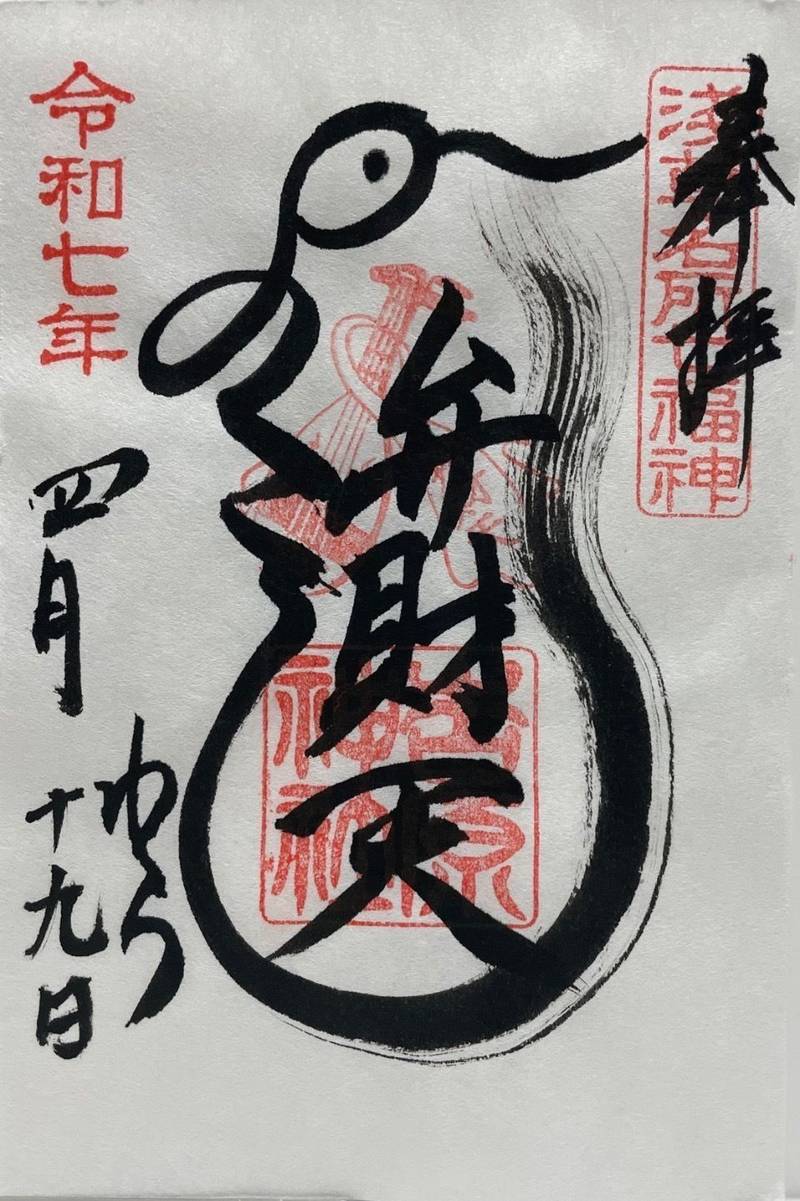 奉拝
浅草名所七福神
弁財天
吉原神社
令和七年
四月十九日